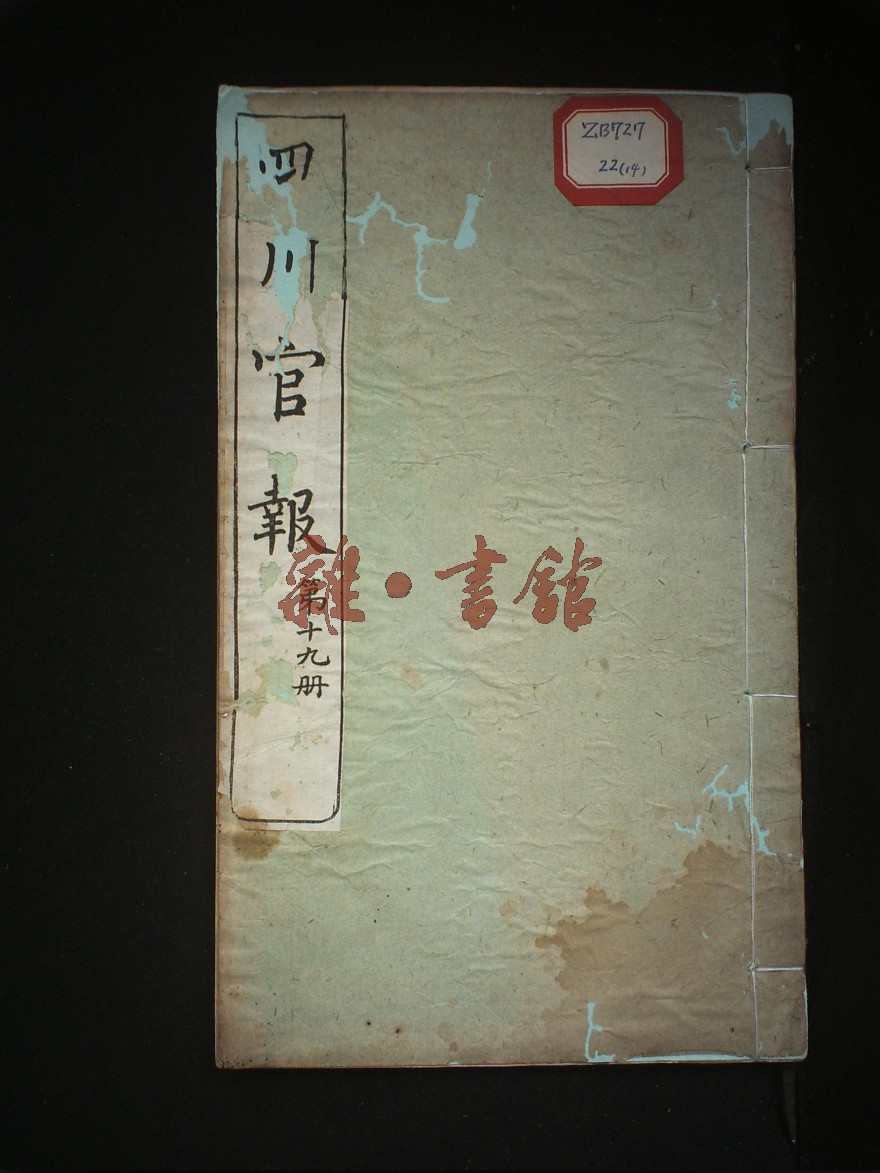 四川官報
第十九册
ZB727
22(14)
雜·書館